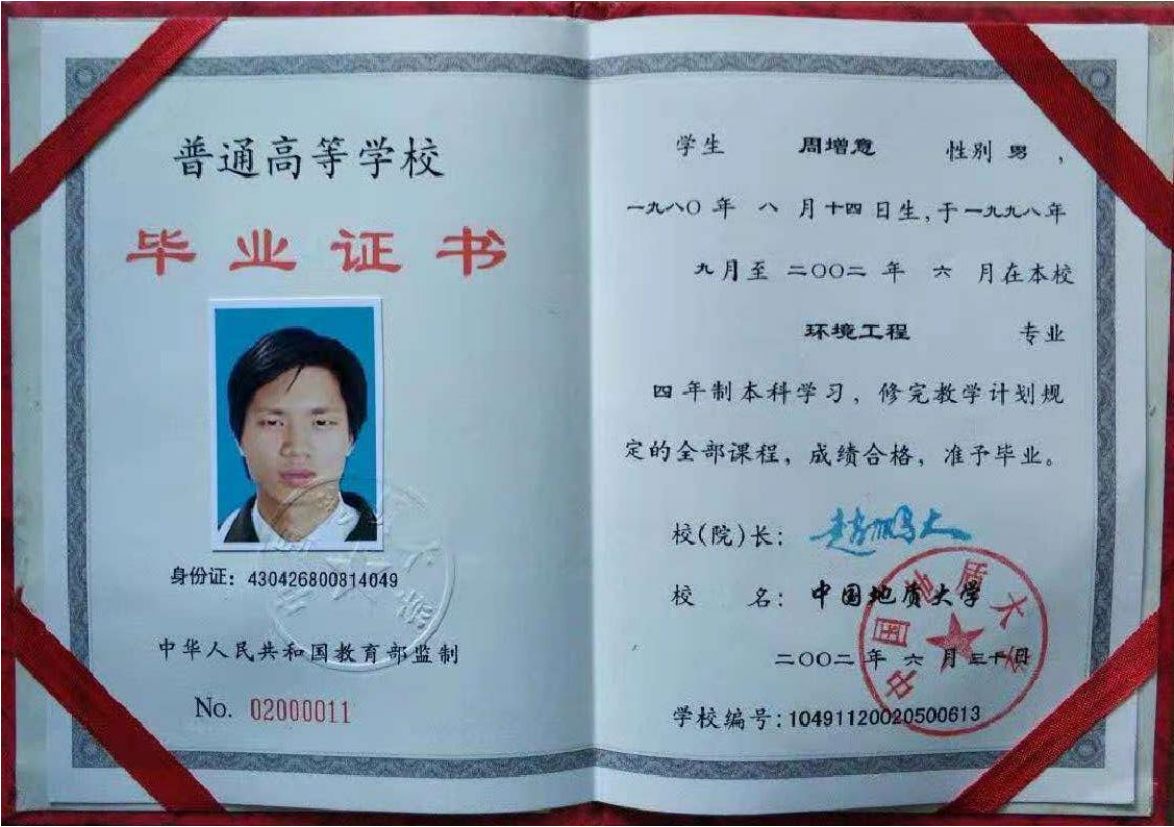 普通高等学校
毕业证书
身份证：430426800814049
中华人民共和国教育部监制
No. 02000011
学生 周增意 性别 男 ，
一九八〇年 八 月十四日生，于一九九八年
九月至 二〇〇二 年 六 月在本校
环境工程 专业
四年制本科学习，修完教学计划规
定的全部课程，成绩合格，准予毕业。
校(院)长： 赵鹏大
校 名：中国地质大学
二〇〇二年六月三十日
学校编号:10491120020500613
中国地质大学